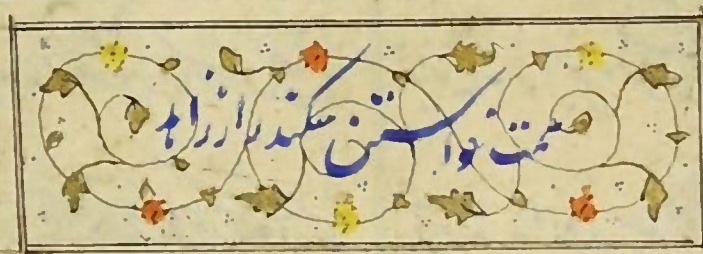 همت خواستن سکندر از زاهد